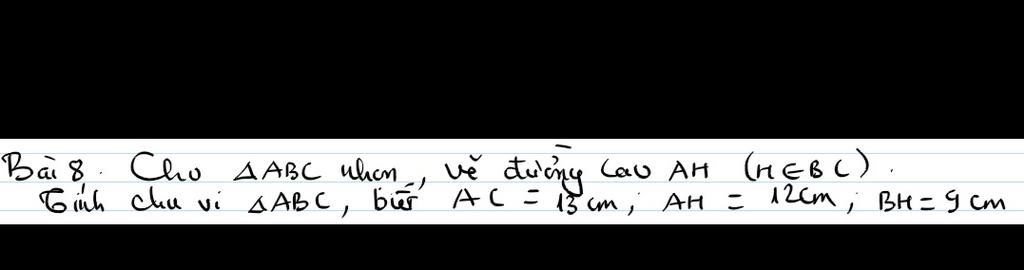 Bài 8. Cho ΔABC nhọn, vẽ đường cao AH (H∈BC).
Tính chu vi ΔABC, biết AC = 13 cm; AH = 12cm; BH = 9 cm